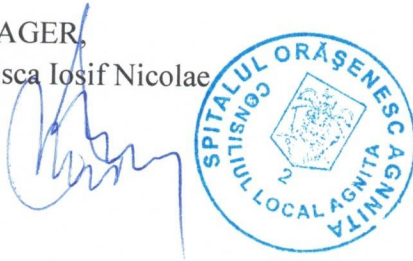 AGER,
sca Iosif Nicolae
SPITALUL ORĂȘENESC AGNNITA
CONSILIUL LOCAL AGNITA
2